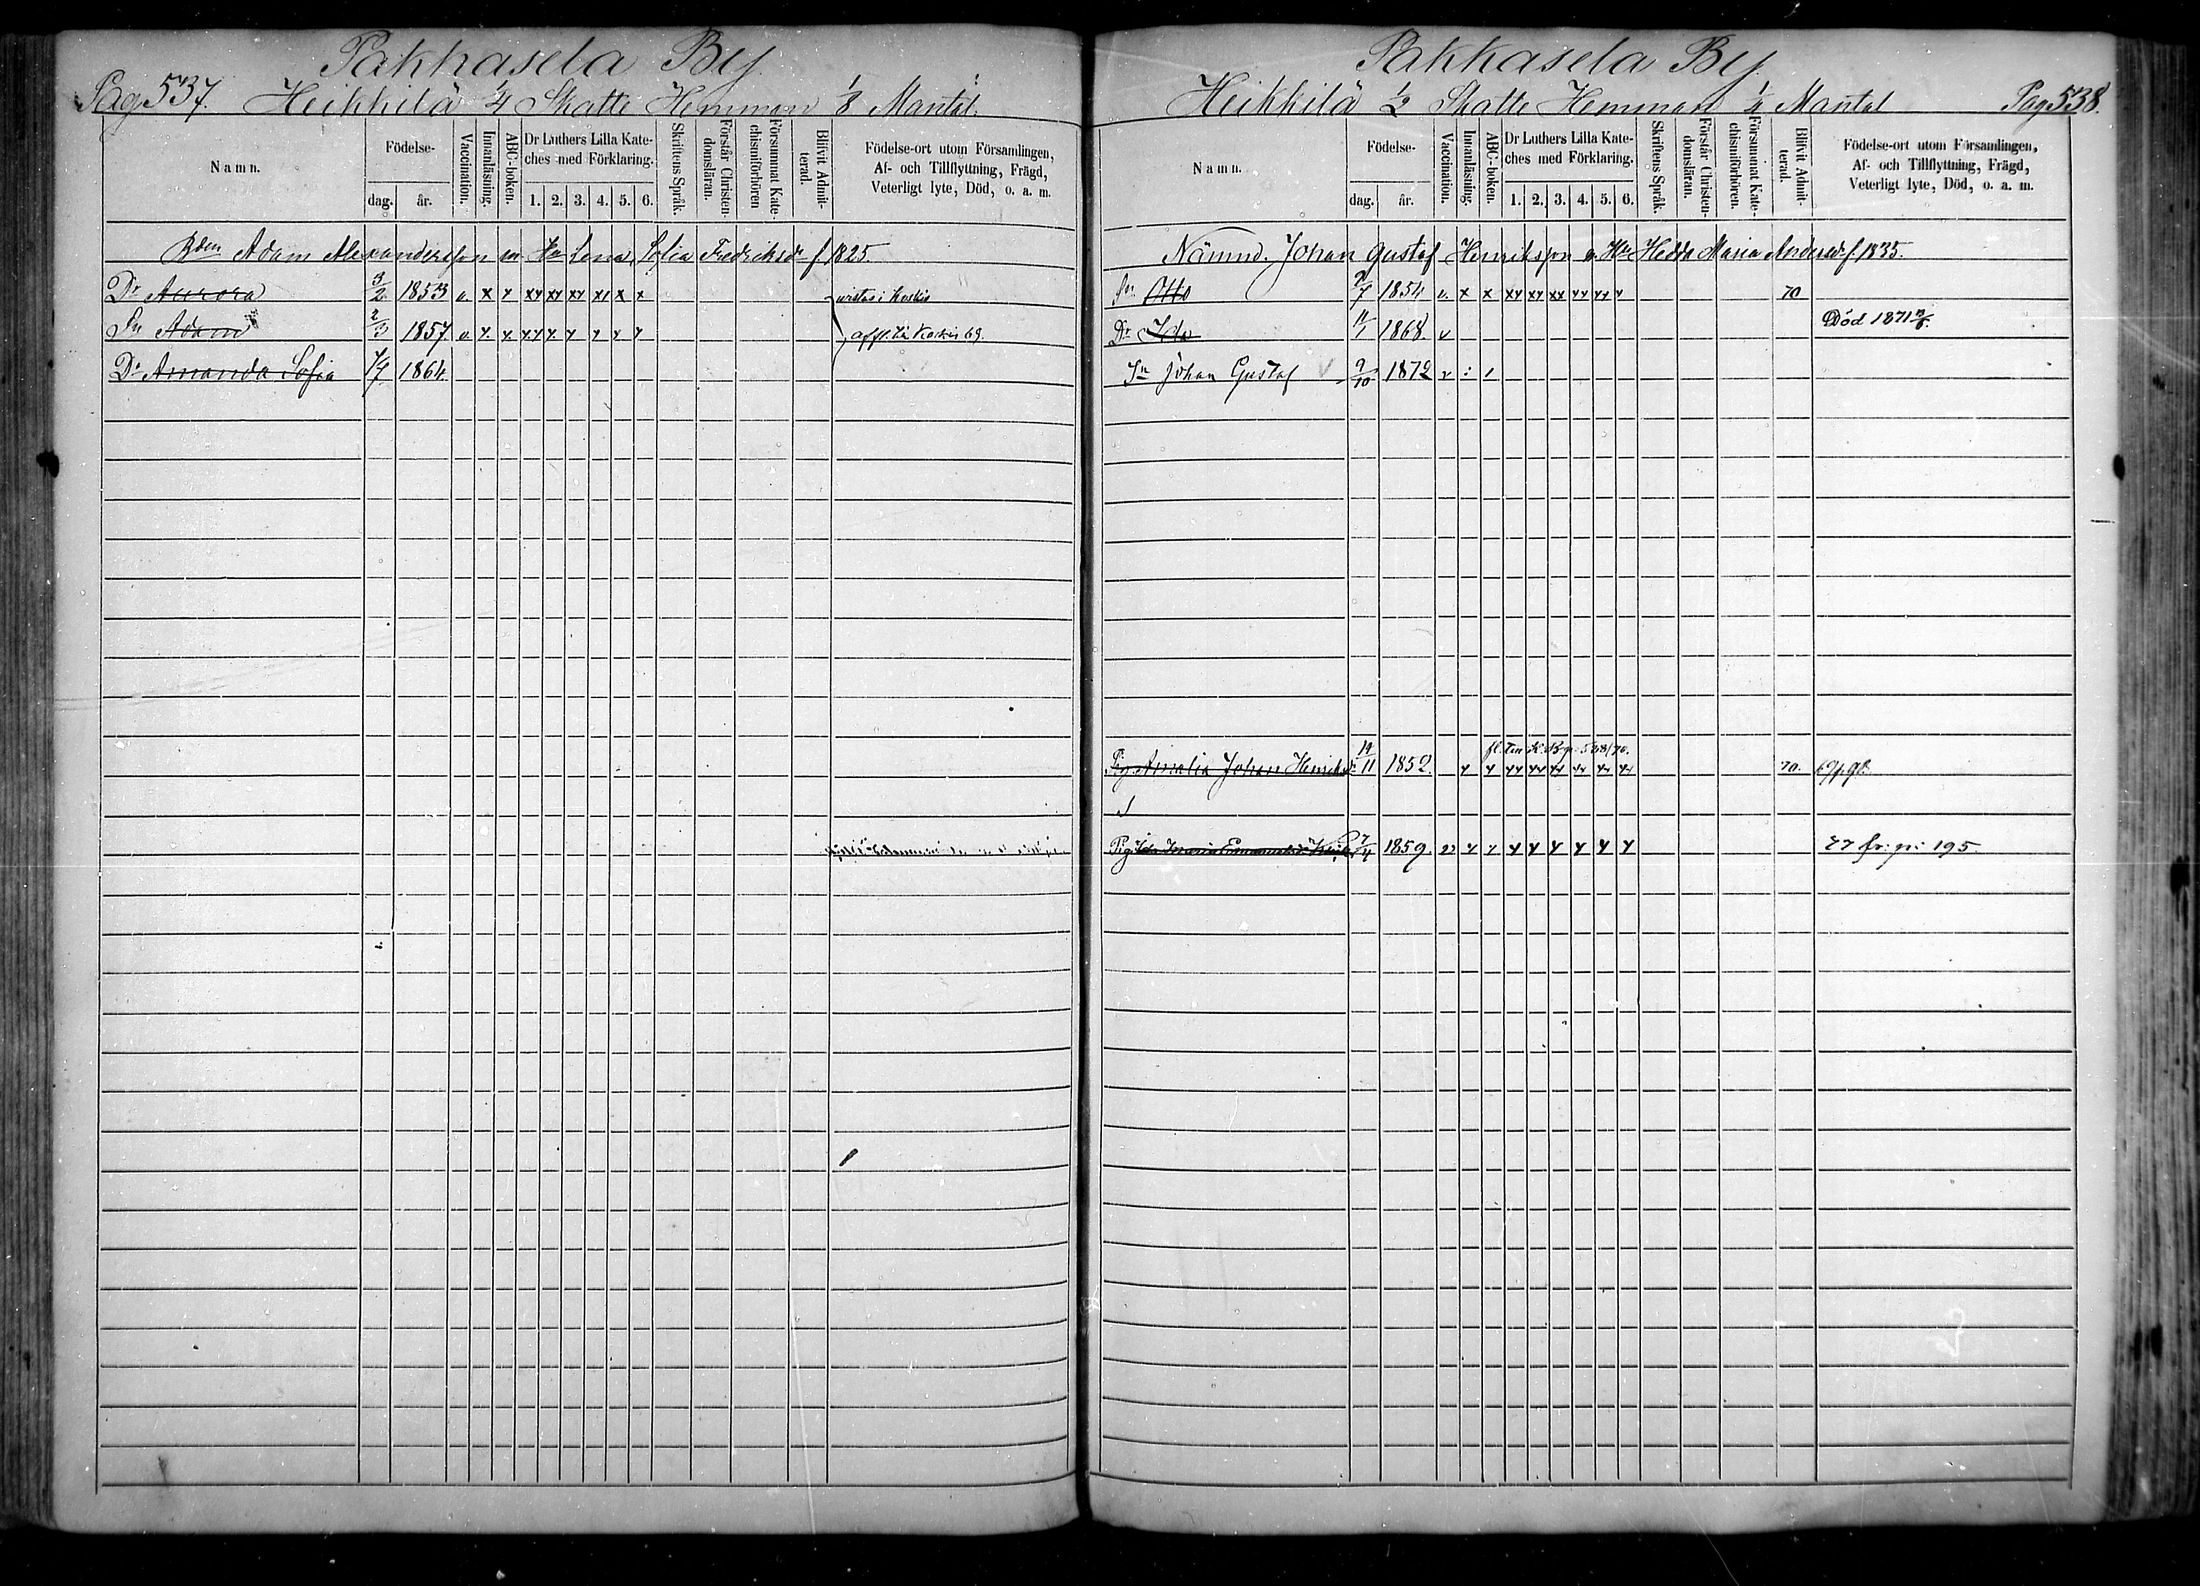 Pakkasela By.
Pag 537. Heikkilä 1/4 Skatte Hemman 1/8 Mantal.
Namn. Födelse- dag. år. Vaccination. Innanläsning. ABC-boken. Dr Luthers Lilla Kateches med Förklaring. 1. 2. 3. 4. 5. 6. Skriftens Språk. Förstår Christendomsläran. Försummat Katechismiförhören Blifvit Admitterad. Födelse-ort utom Församlingen, Af- och Tillflyttning, Frägd, Veterligt lyte, Död, o. a. m.
Bden Adam Alexandersson m Hu Lena Sofia Fredriksdr f 1825.
Dr Aurora 3/2 1853 v. x x xx xx xx xx x x vistas i Koskis
Sn Adam 2/3 1857 v. x. x. xx x. x x x x affl. till Koskis 69.
Dr Amanda Sofia 7/7 1864.
Pakkasela By.
Heikkilä 1/2 Skatte Hemman 1/4 Mantal Pag 538.
Namn. Födelse- dag. år. Vaccination. Innanläsning. ABC-boken. Dr Luthers Lilla Kateches med Förklaring. 1. 2. 3. 4. 5. 6. Skriftens Språk. Förstår Christendomsläran. Försummat Katechismiförhören. Blifvit Admitterad. Födelse-ort utom Församlingen, Af- och Tillflyttning, Frägd, Veterligt lyte, Död, o. a. m.
Nämnd. Johan Gustaf Henriksson o. Hu Hedda Maria Andersdr f 1835.
Sn Otto 1854 v. x x xx xx xx xx xx x 70
Dr Ida 11/1 1868. v Död 1871
Sn Johan Gustaf 9/10 1872 v : 1
Pig. Amalia Johan Henriksdr 14/11 1852. x x xx xx xx xx xx xx 70.
Pig Ida Maria 7/4 1859. v x x x x x x x x 77 fr: p: 195.